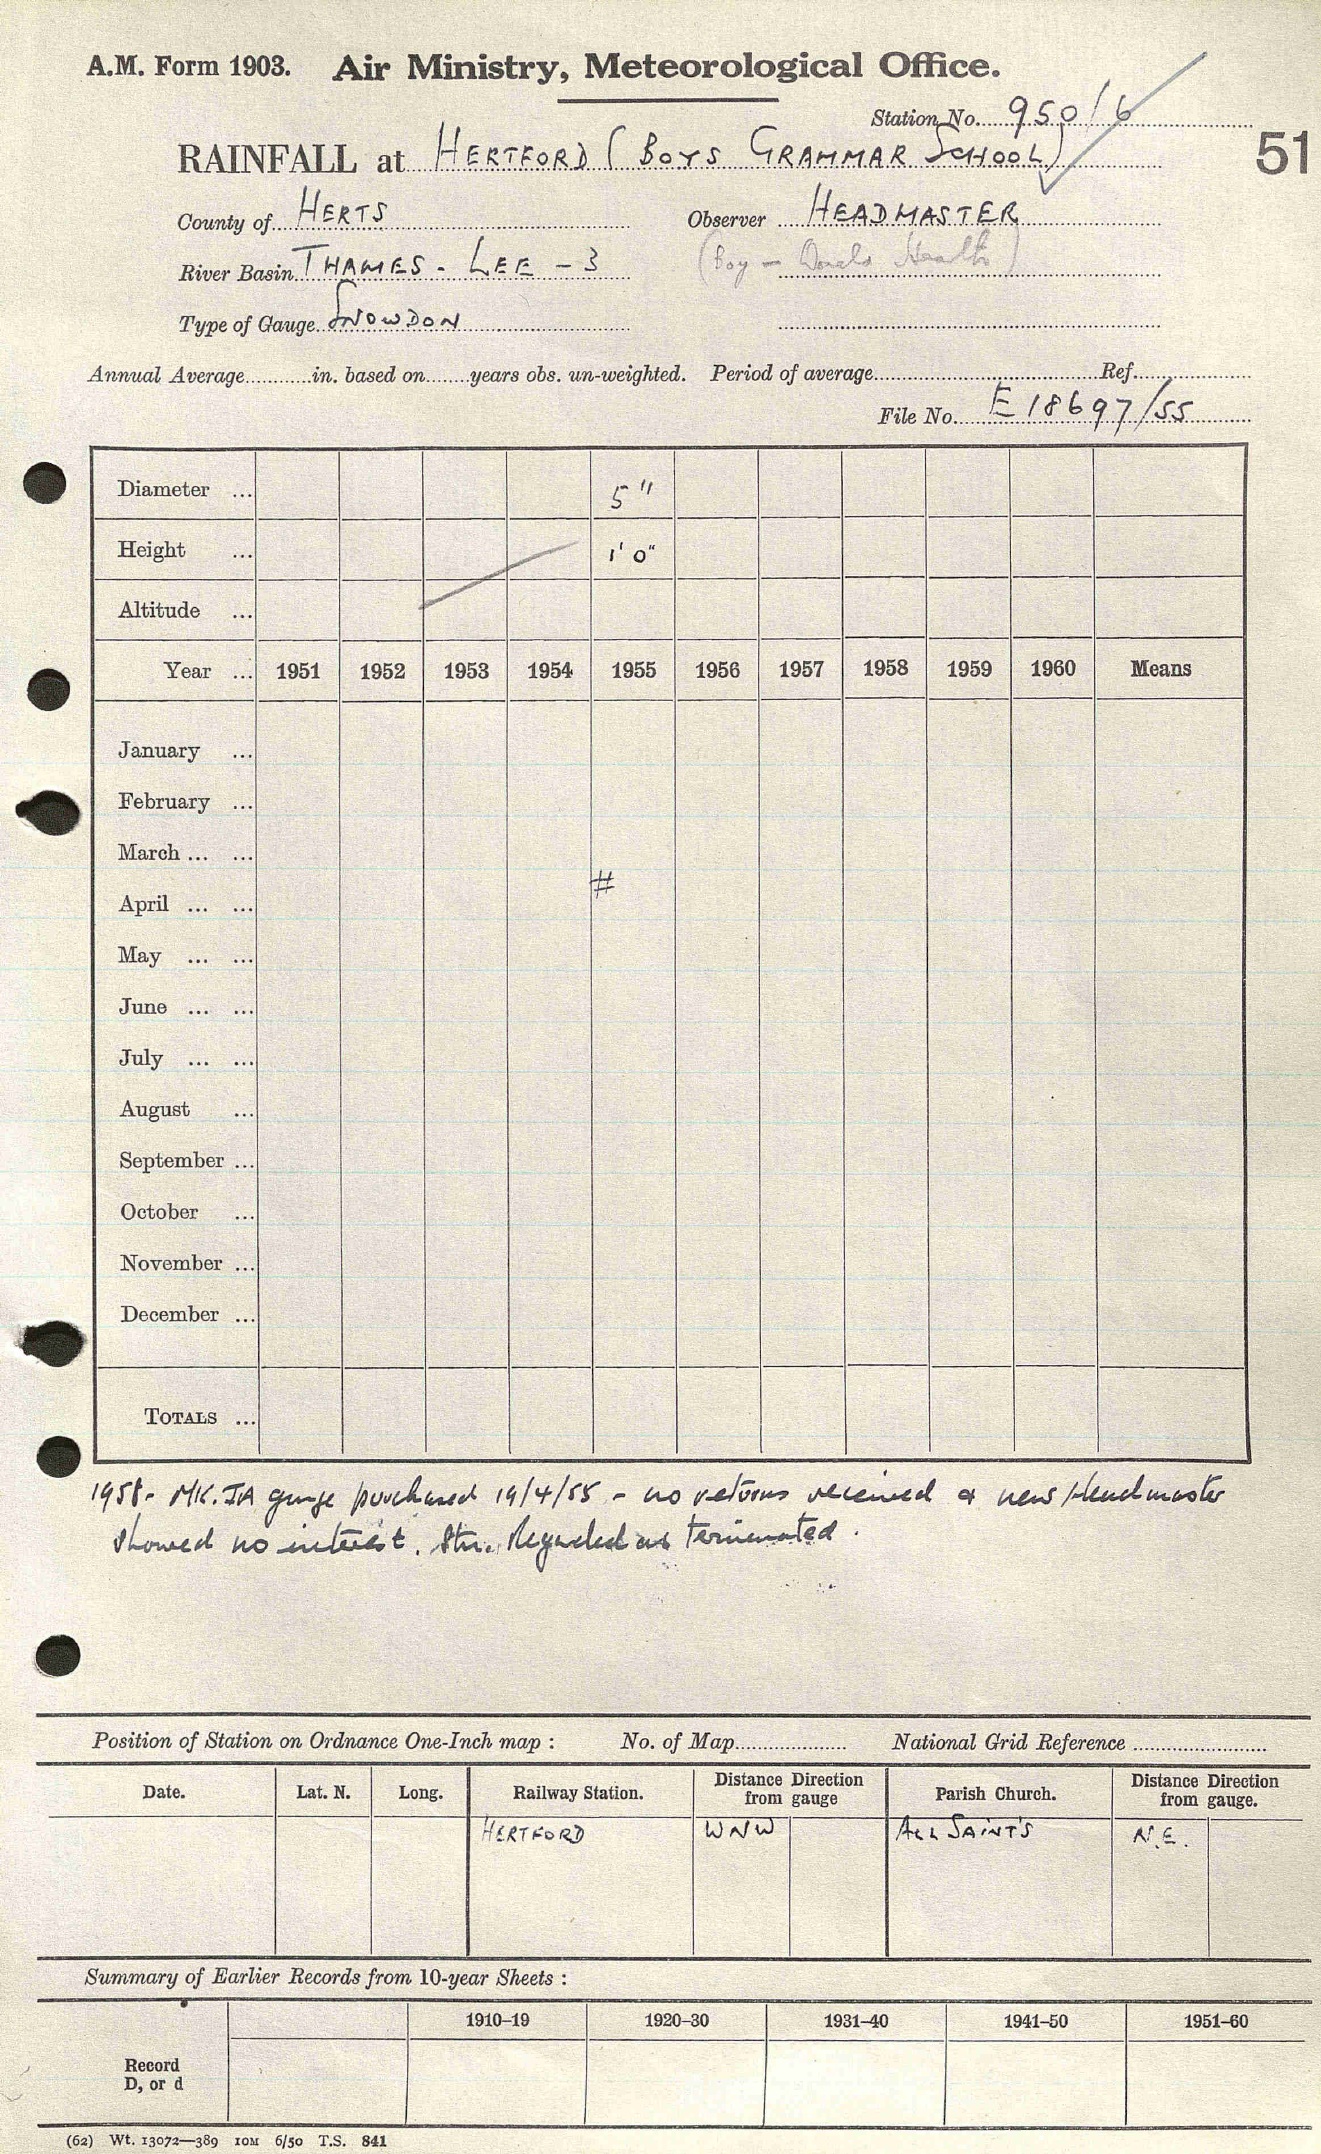 A.M. Form 1903. Air Ministry, Meteorological Office.
Station No. 950/6
RAINFALL at HERTFORD (BOYS GRAMMAR SCHOOL)
51
County of HERTS Observer HEADMASTER
River Basin THAMES - LEE - 3 (Boy - Heath)
Type of Gauge SNOWDON
Annual Average in. based on years obs. un-weighted. Period of average Ref.
File No. E18697/55
Diameter ... 5"
Height ... 1' 0"
Altitude ...
Year ... 1951 1952 1953 1954 1955 1956 1957 1958 1959 1960 Means
January ...
February ...
March ... ...
#
April ... ...
May ... ...
June ... ...
July ... ...
August ...
September ...
October ...
November ...
December ...
TOTALS ...
1958 - MK. IA gauge purchased 19/4/55 - no returns received & new Headmaster
showed no interest. Stn. Regarded as terminated.
Position of Station on Ordnance One-Inch map : No. of Map National Grid Reference
Date. Lat. N. Long. Railway Station. Distance Direction from gauge Parish Church. Distance Direction from gauge.
HERTFORD WNW ALL SAINT'S N.E.
Summary of Earlier Records from 10-year Sheets :
1910–19 1920–30 1931–40 1941–50 1951–60
Record
D, or d
(62) Wt. 13072—389 10M 6/50 T.S. 841